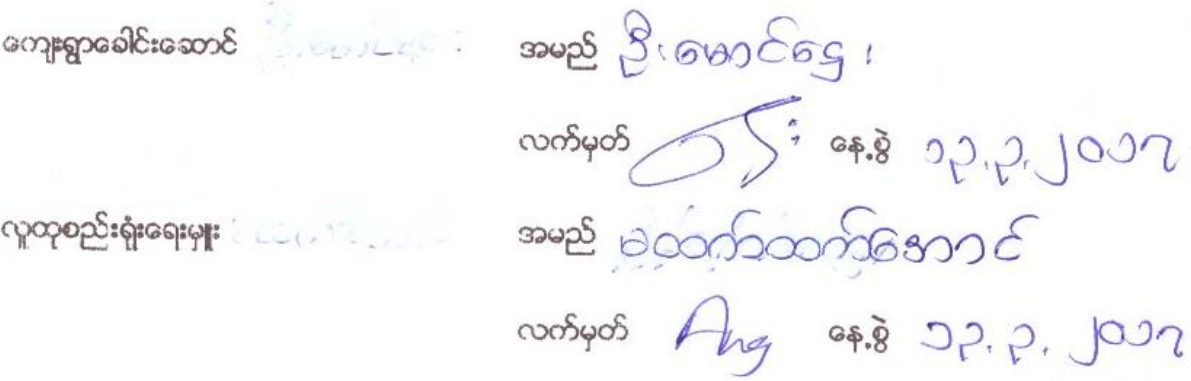 ကျေးရွာခေါင်းဆောင် အမည် ဦးမောင်ဌေး
လက်မှတ် နေ့စွဲ ၁၃.၃.၂၀၁၇
လူထုစည်းရုံးရေးမှူး အမည် မထက်ထက်အောင်
လက်မှတ် Ang နေ့စွဲ ၁၃.၃.၂၀၁၇